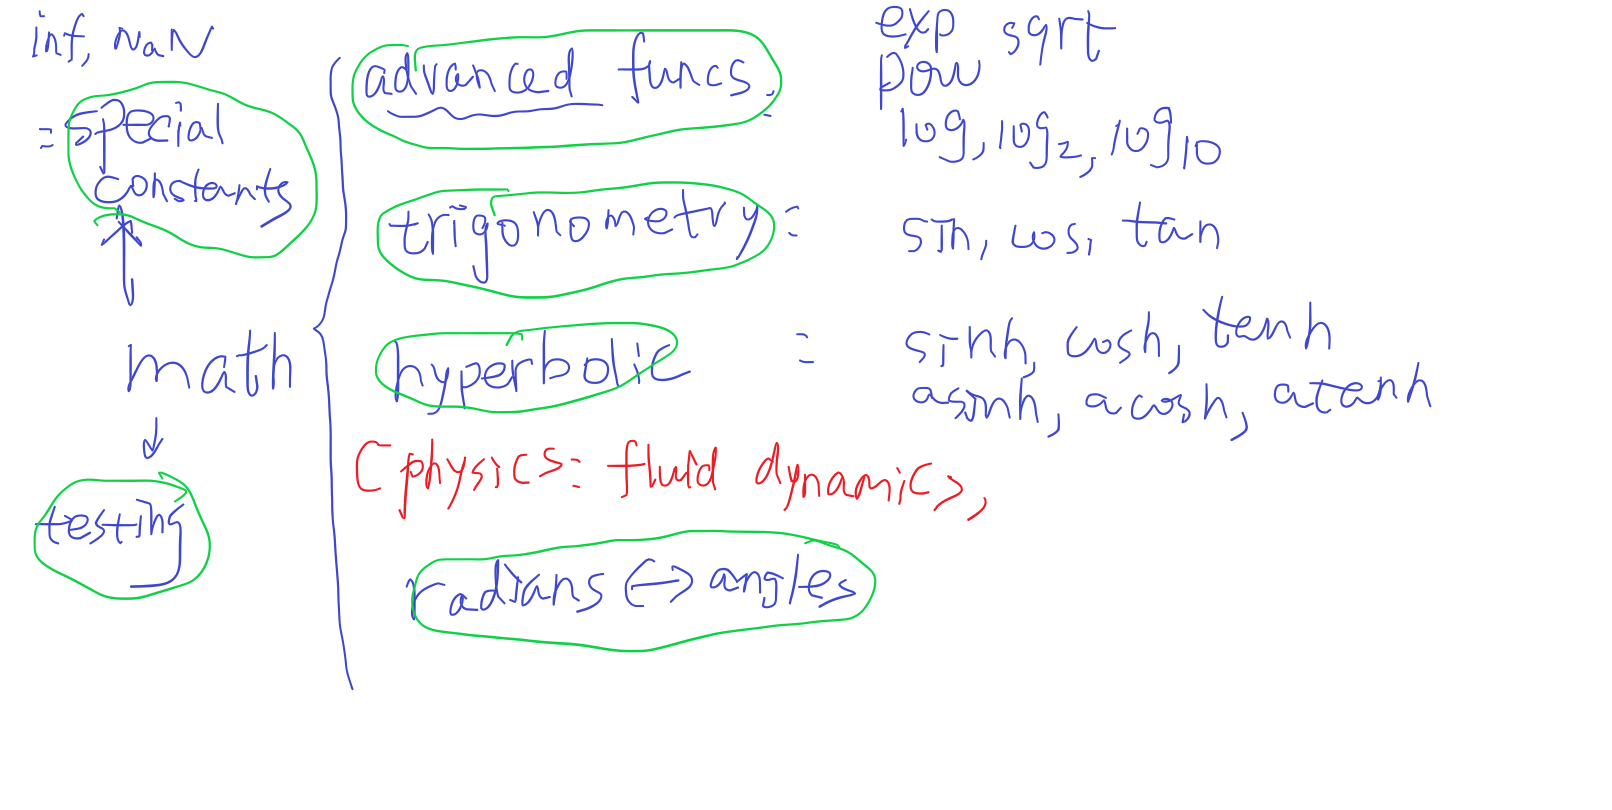 inf, NaN
= special
constants
math
testing
advanced funcs :
exp sqrt
pow
log, log2, log10
trigonometry :
sin, cos, tan
hyperbolic =
sinh, cosh, tanh
asinh, acosh, atanh
(physics: fluid dynamics,
radians <-> angles